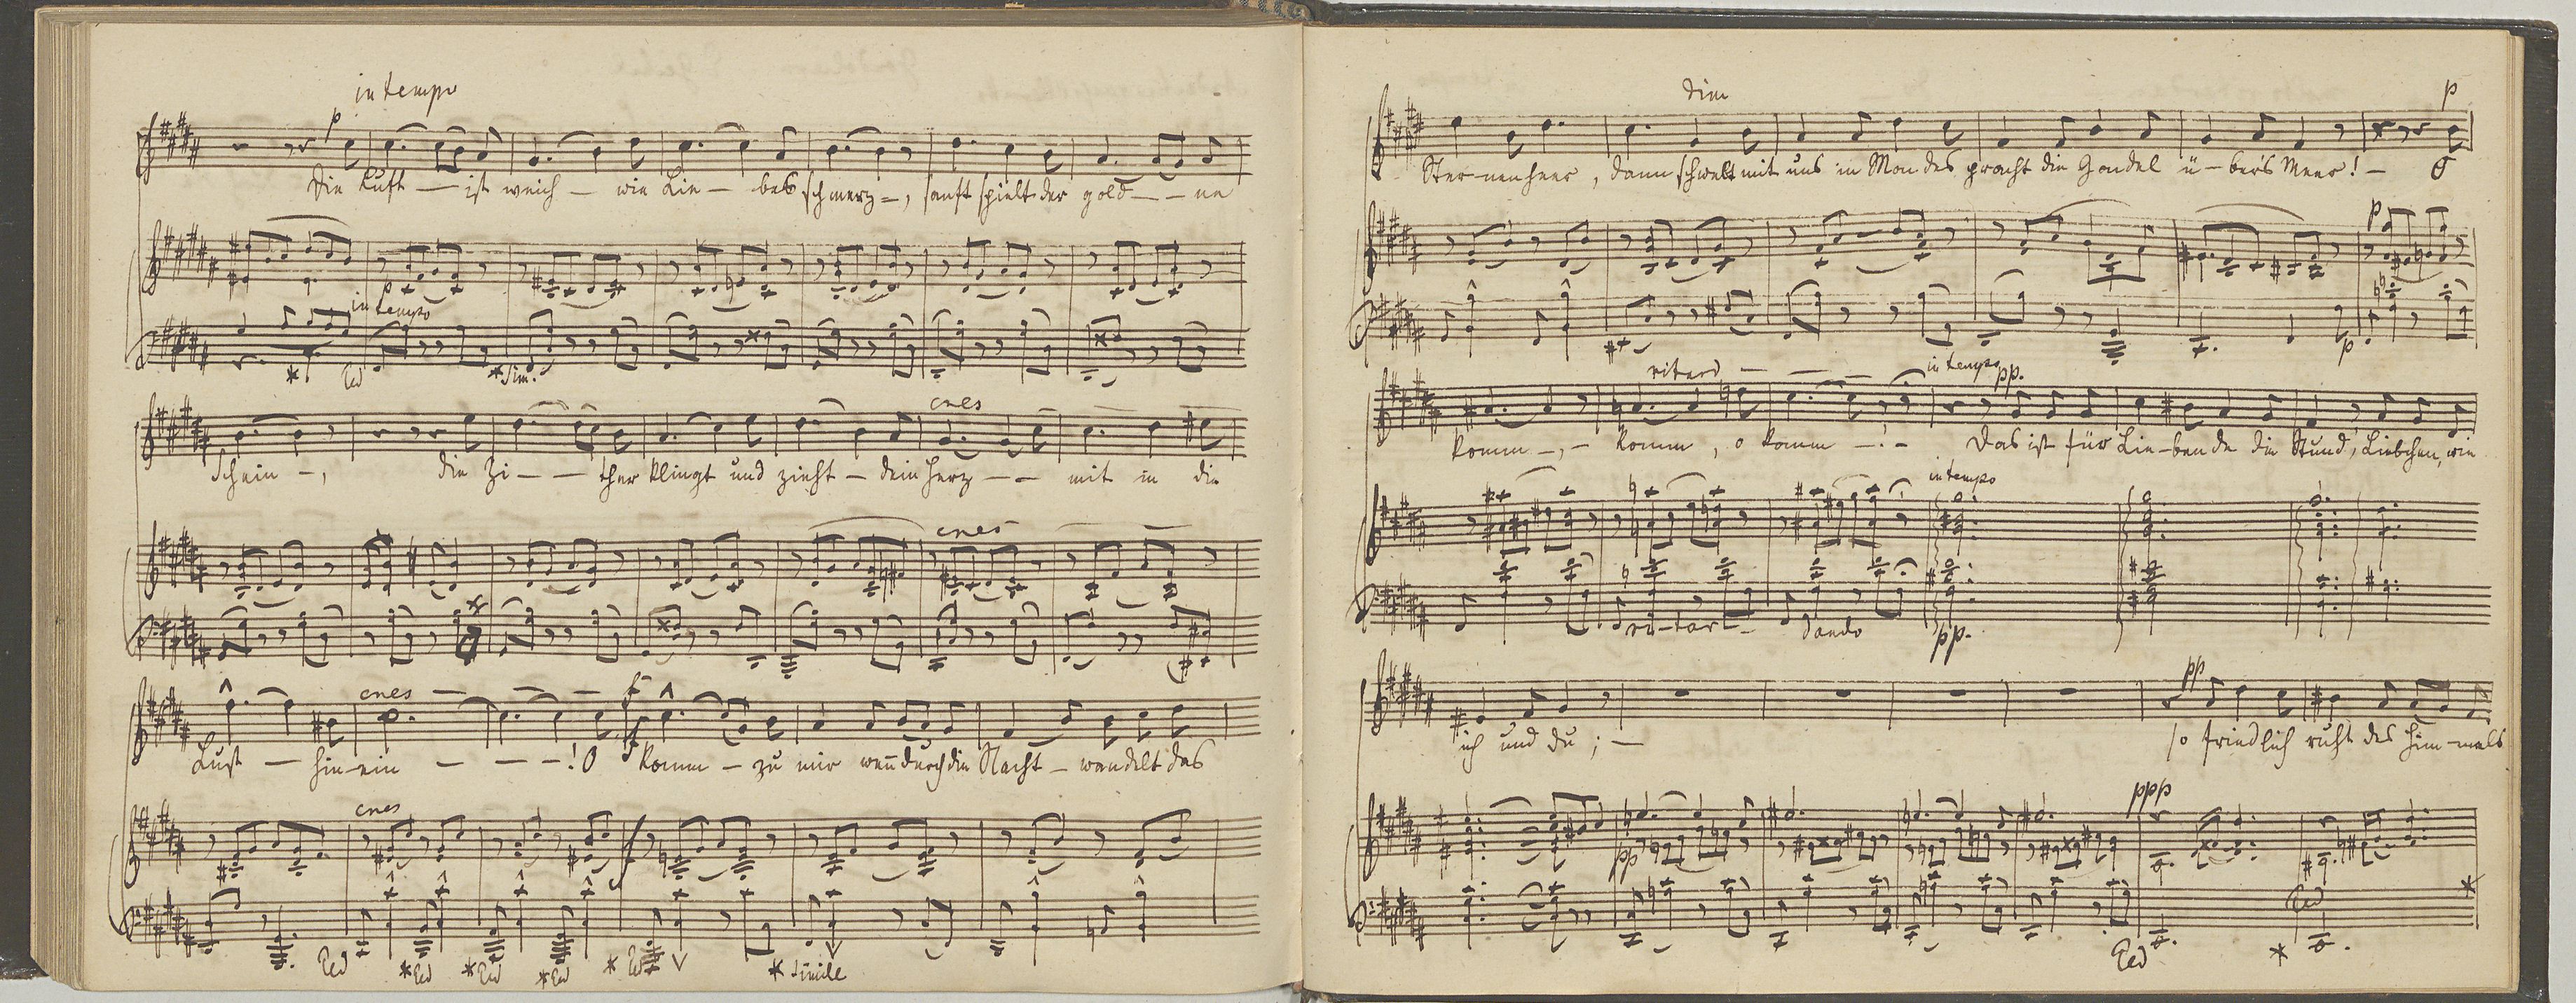 in tempo
p
Die Luft — ist weich — wie Lie — bes schmerz —, sanft spielt der gold — — ne
p
in tempo
* Ped * Sim.
cres
Schein —, die Zi — — ther klingt und zieht — dein Herz — — mit in die
cres
cres — — — f
Lust — hin-ein — — — —! O komm — zu mir wen̄ durch die Nacht — wandelt das
cres f
Ped * Ped * Ped * Ped * Ped * Simile
dim p
Sternenheer, dann schwebt mit uns in Mondespracht die Gondel ü-bers Meer! — O
p
p
ritard — — — in tempo pp.
komm —, — komm, o komm —! — Das ist für Lie-ben-de die Stund', Liebchen, wie
in tempo
ri-tar — dando pp.
pp
ich und du; — so friedlich ruht des Him-mels
pp ppp
Ped * Ped *